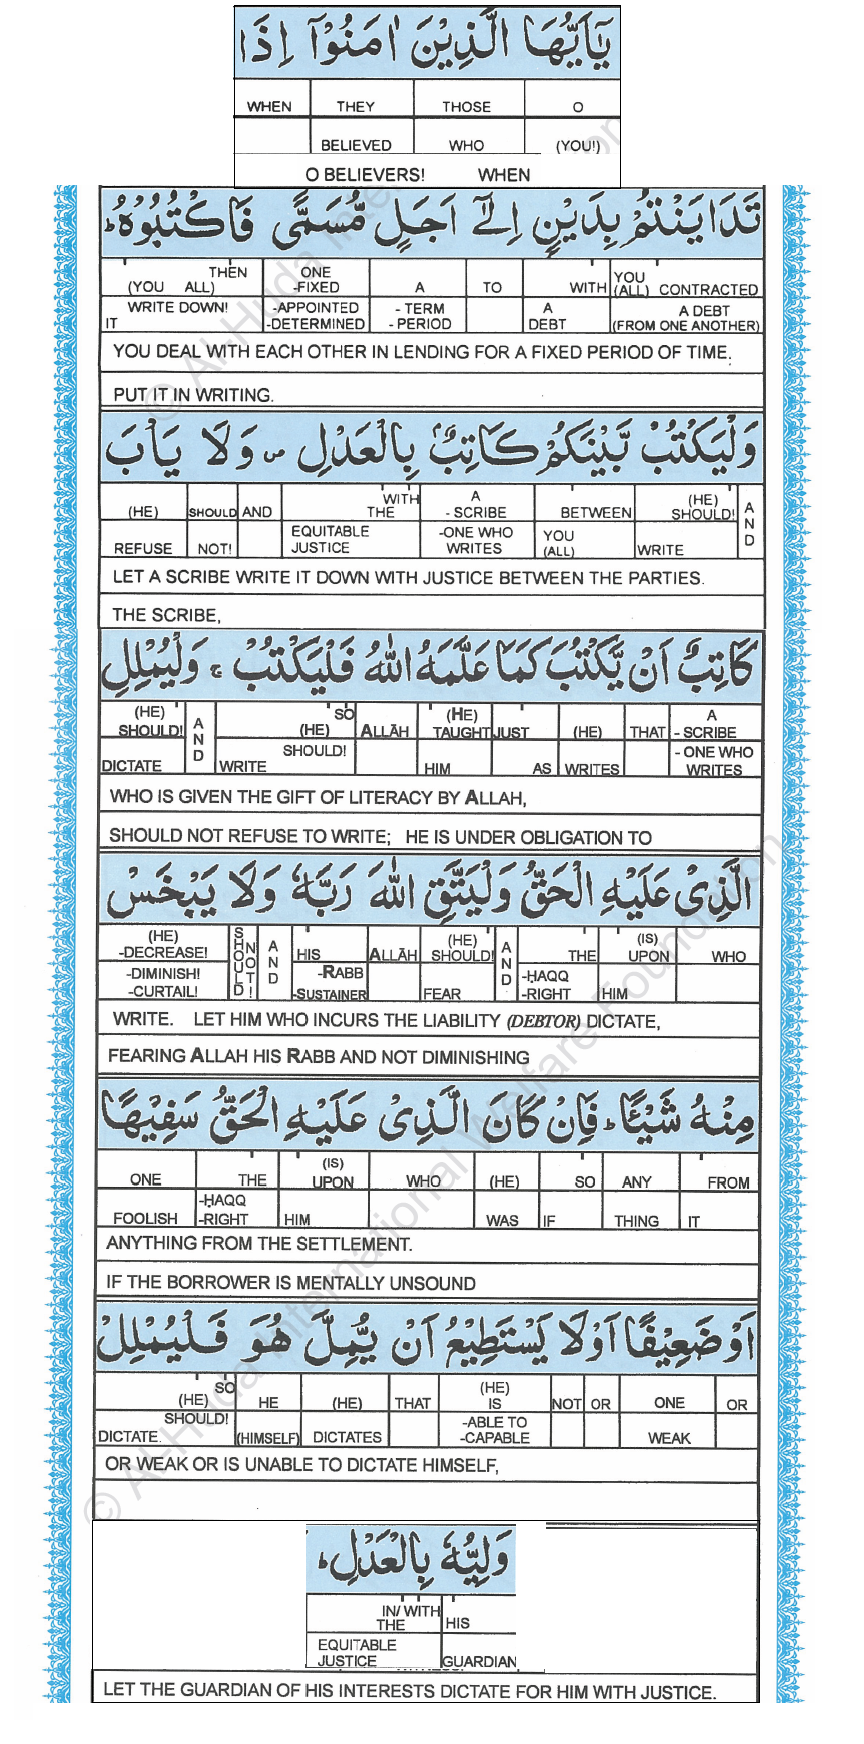 يٰۤاَيُّهَا الَّذِيْنَ اٰمَنُوْۤا اِذَا
WHEN THEY THOSE O
BELIEVED WHO (YOU!)
O BELIEVERS! WHEN
تَدَايَنْتُمْ بِدَيْنٍ اِلٰۤى اَجَلٍ مُّسَمًّى فَاكْتُبُوْهُ ؕ
THEN ONE YOU
(YOU ALL) -FIXED A TO WITH (ALL) CONTRACTED
WRITE DOWN! -APPOINTED - TERM A A DEBT
IT -DETERMINED - PERIOD DEBT (FROM ONE ANOTHER)
YOU DEAL WITH EACH OTHER IN LENDING FOR A FIXED PERIOD OF TIME.
PUT IT IN WRITING.
وَلْيَكْتُبْ بَّيْنَكُمْ كَاتِبٌۢ بِالْعَدْلِ ۪ وَلَا يَاْبَ
WITH A (HE)
(HE) SHOULD AND THE - SCRIBE BETWEEN SHOULD! AND
EQUITABLE -ONE WHO YOU
REFUSE NOT! JUSTICE WRITES (ALL) WRITE
LET A SCRIBE WRITE IT DOWN WITH JUSTICE BETWEEN THE PARTIES.
THE SCRIBE,
كَاتِبٌ اَنْ يَّكْتُبَ كَمَا عَلَّمَهُ اللّٰهُ فَلْيَكْتُبْ ۚ وَلْيُمْلِلِ
(HE) SO (HE) A
SHOULD! AND (HE) ALLĀH TAUGHT JUST (HE) THAT - SCRIBE
SHOULD! - ONE WHO
DICTATE WRITE HIM AS WRITES WRITES
WHO IS GIVEN THE GIFT OF LITERACY BY ALLAH,
SHOULD NOT REFUSE TO WRITE; HE IS UNDER OBLIGATION TO
الَّذِيْ عَلَيْهِ الْحَقُّ وَلْيَتَّقِ اللّٰهَ رَبَّهٗ وَلَا يَبْخَسْ
(HE) (HE) (IS)
-DECREASE! SHOULD NOT! AND HIS ALLĀH SHOULD! AND THE UPON WHO
-DIMINISH! -RABB -ḤAQQ
-CURTAIL! -SUSTAINER FEAR -RIGHT HIM
WRITE. LET HIM WHO INCURS THE LIABILITY (DEBTOR) DICTATE,
FEARING ALLAH HIS RABB AND NOT DIMINISHING
مِنْهُ شَيْـًٔا ؕ فَاِنْ كَانَ الَّذِيْ عَلَيْهِ الْحَقُّ سَفِيْهًا
(IS)
ONE THE UPON WHO (HE) SO ANY FROM
-ḤAQQ
FOOLISH -RIGHT HIM WAS IF THING IT
ANYTHING FROM THE SETTLEMENT.
IF THE BORROWER IS MENTALLY UNSOUND
اَوْ ضَعِيْفًا اَوْ لَا يَسْتَطِيْعُ اَنْ يُّمِلَّ هُوَ فَلْيُمْلِلْ
SO (HE)
(HE) HE (HE) THAT IS NOT OR ONE OR
SHOULD! -ABLE TO
DICTATE (HIMSELF) DICTATES -CAPABLE WEAK
OR WEAK OR IS UNABLE TO DICTATE HIMSELF,
وَلِيُّهٗ بِالْعَدْلِ ؕ
IN/ WITH
THE HIS
EQUITABLE
JUSTICE GUARDIAN
LET THE GUARDIAN OF HIS INTERESTS DICTATE FOR HIM WITH JUSTICE.
© Al-Huda International Welfare Foundation